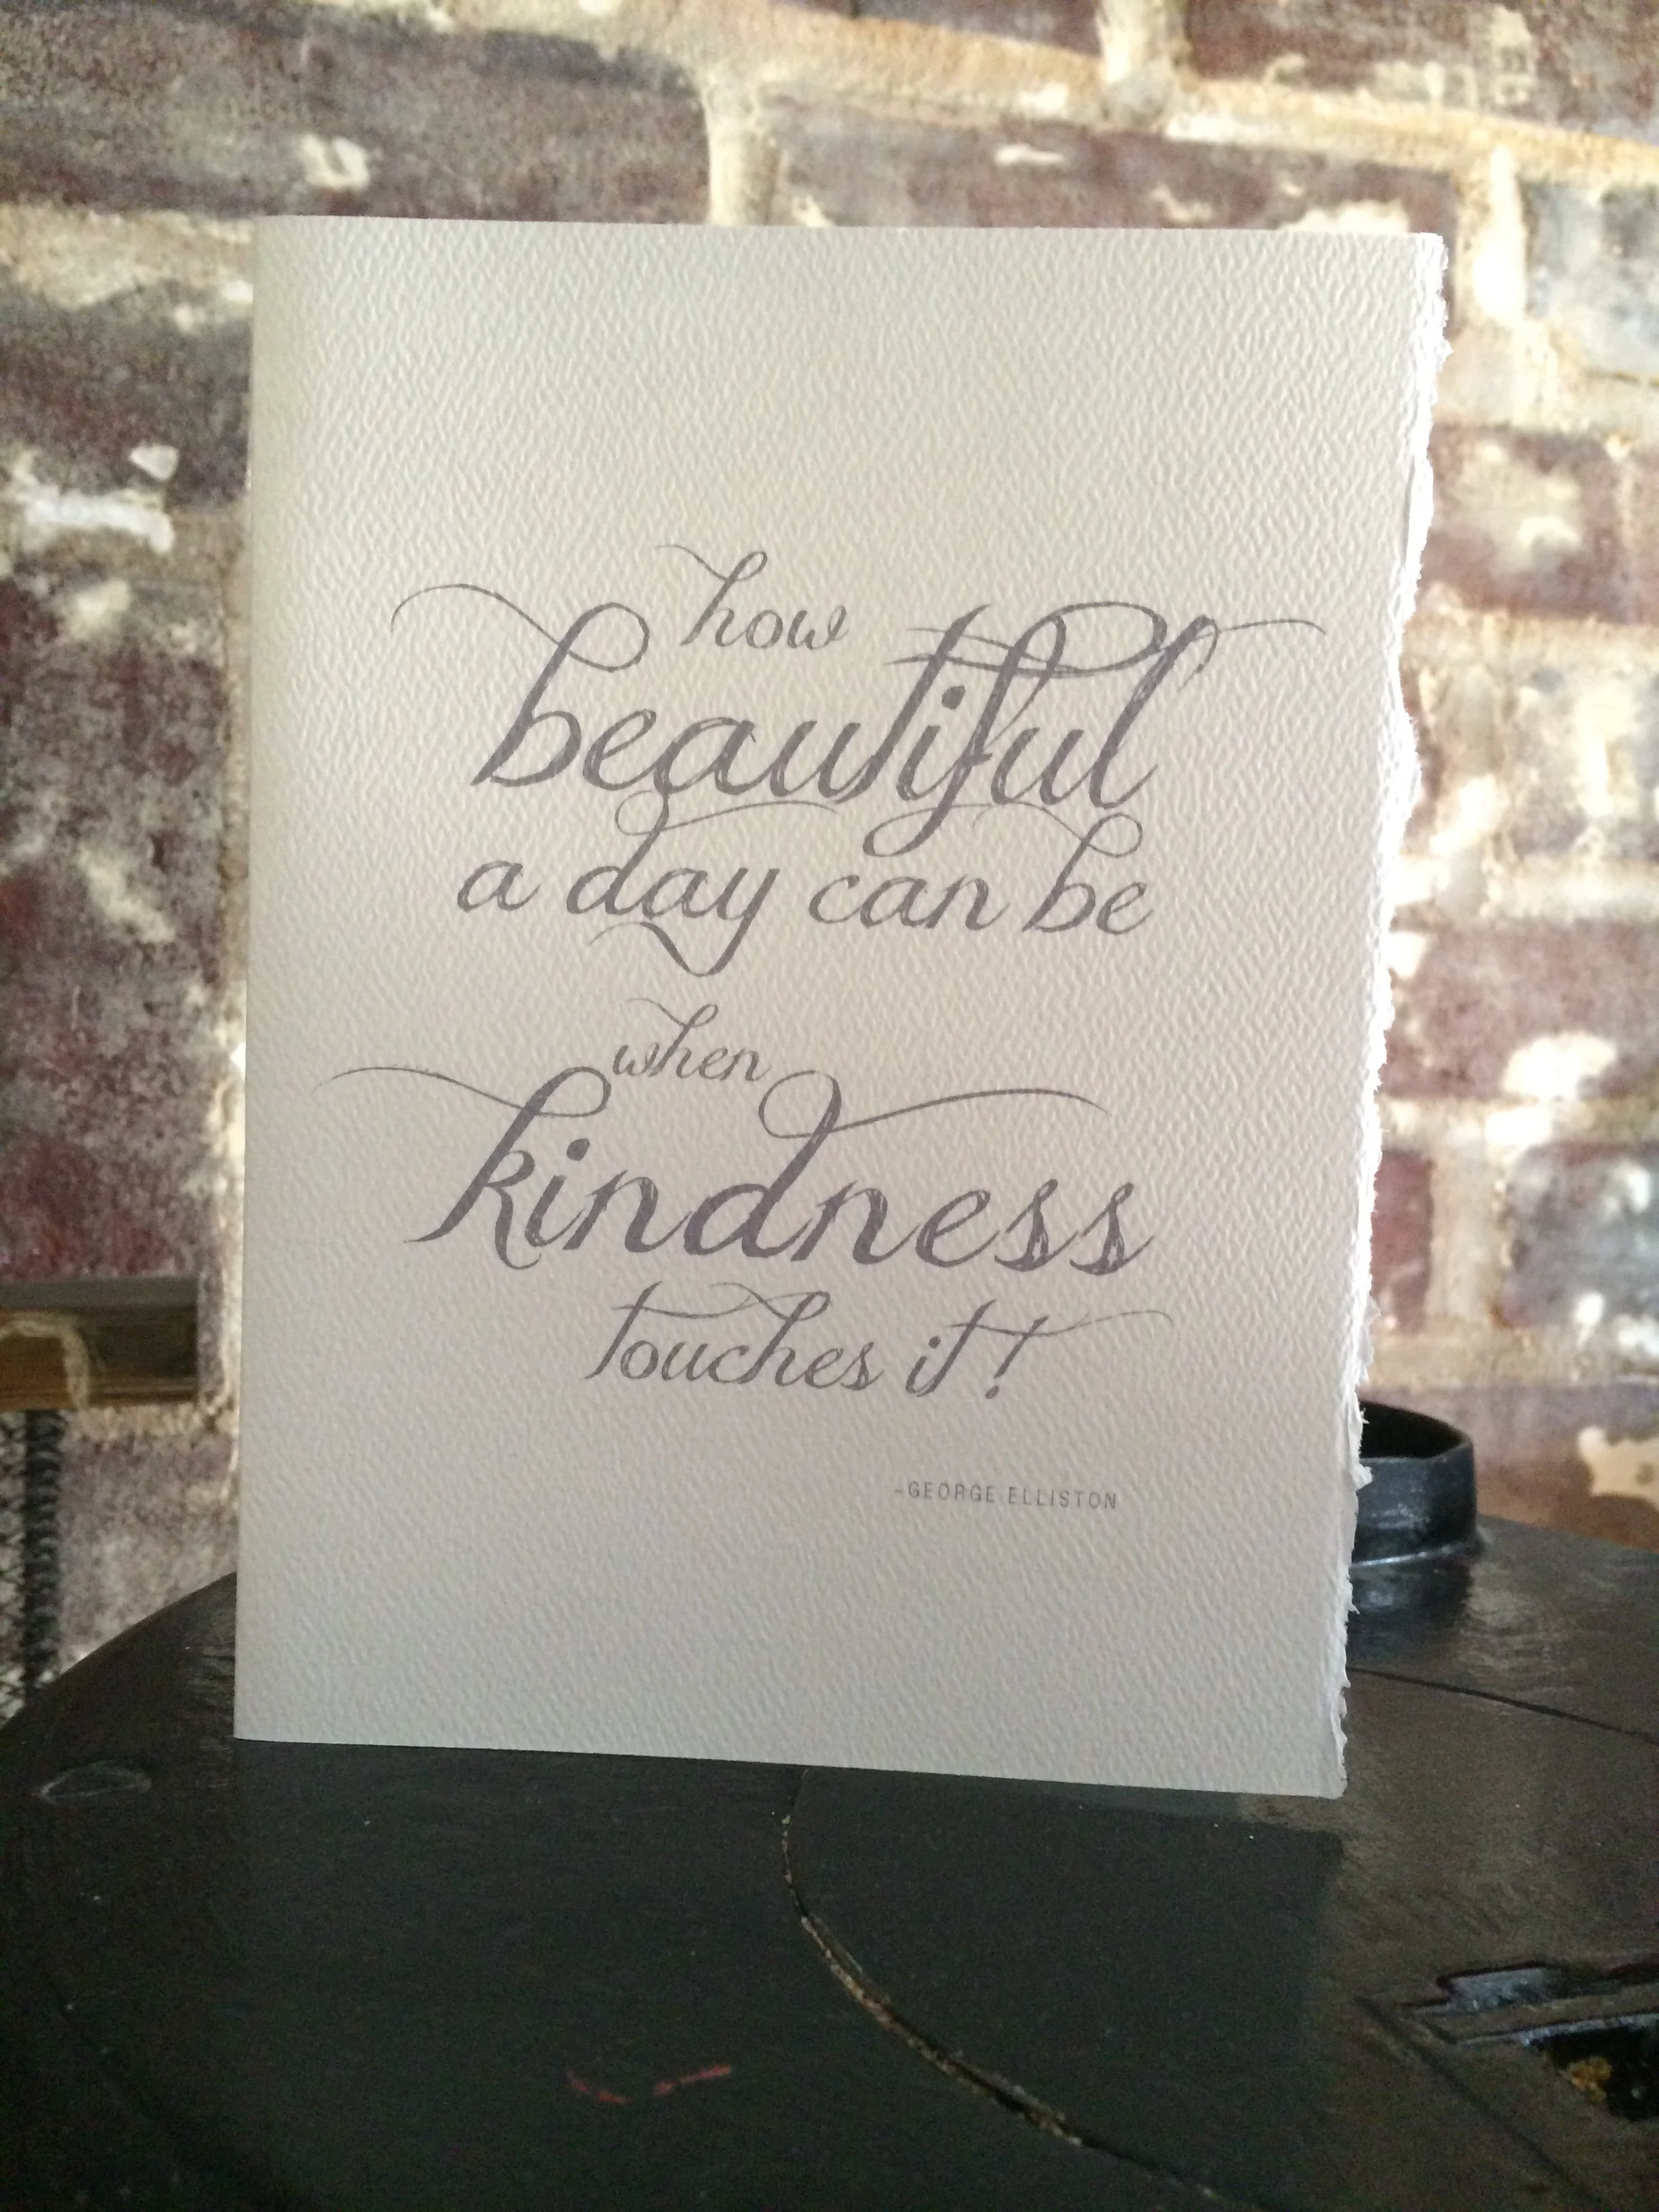 how
beautiful
a day can be
when
kindness
touches it!
-GEORGE ELLISTON